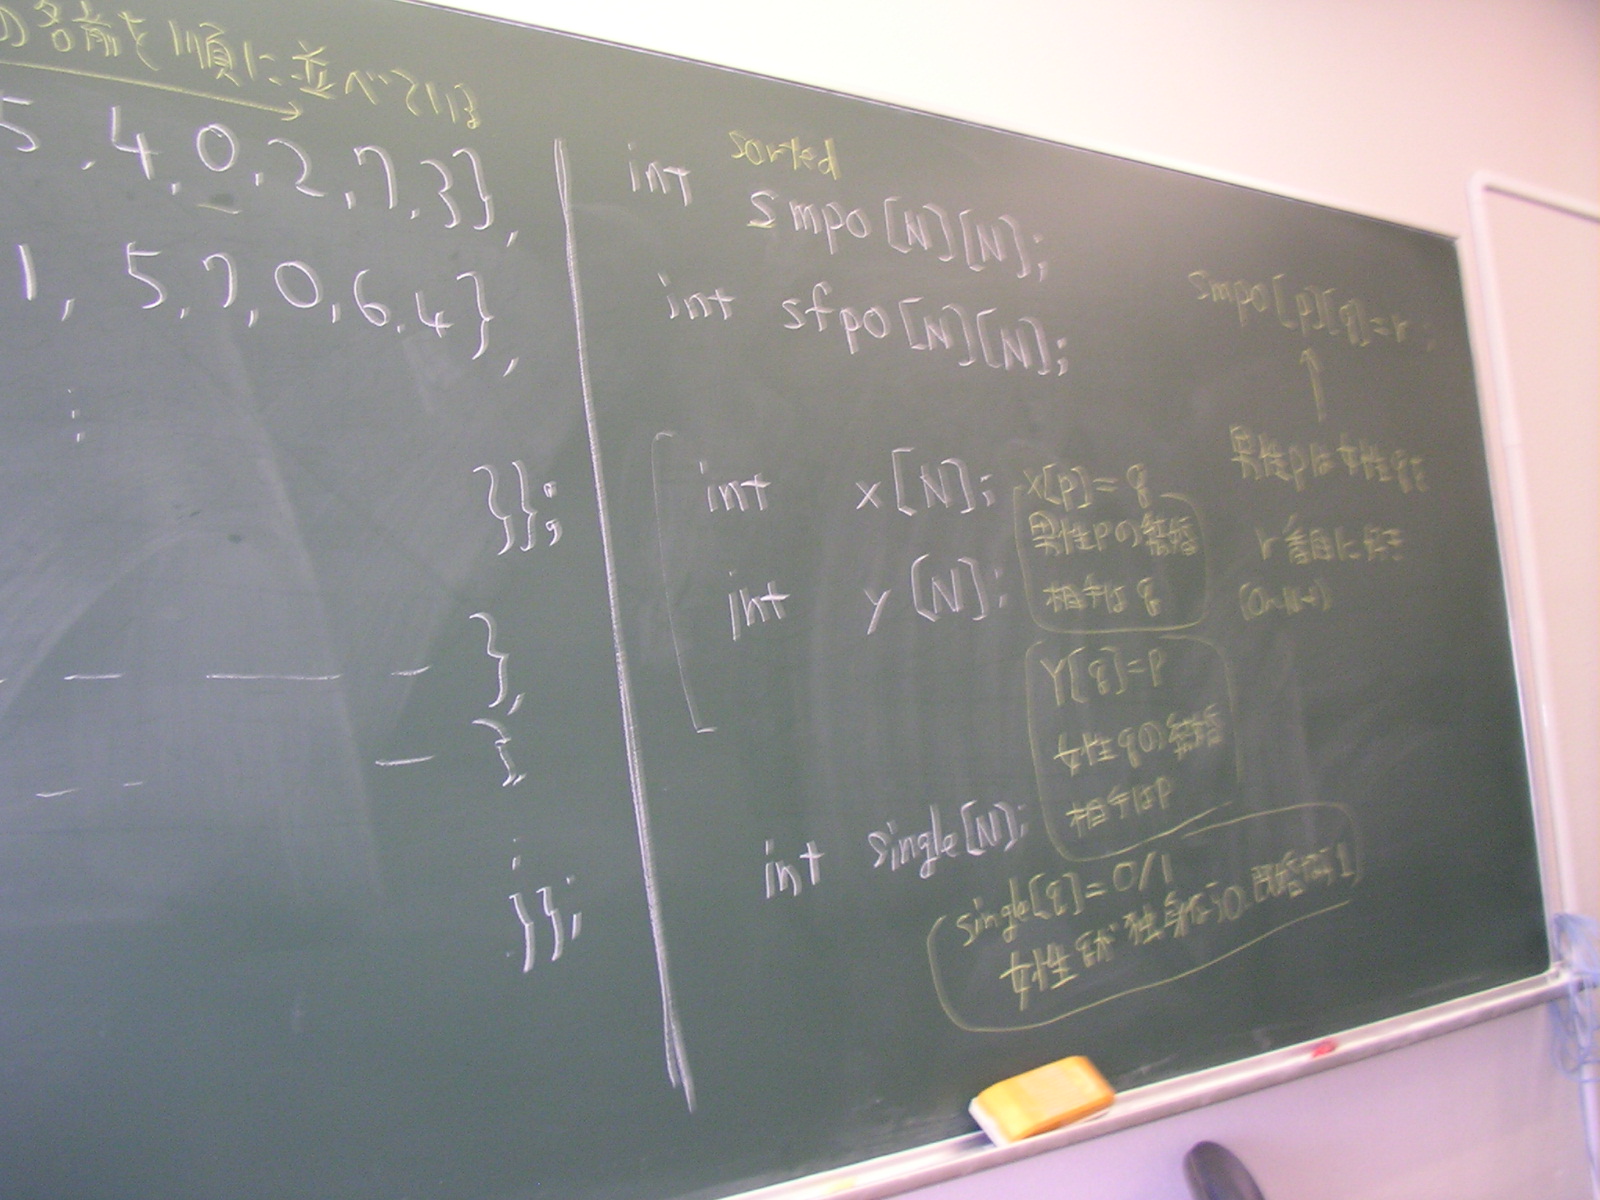 の名前を順に並べている
5, 4, 0, 2, 7, 3},
1, 5, 7, 0, 6, 4},
:
}};
},
},
:
}};
sorted
int smpo[N][N];
int sfpo[N][N];
int x[N];
int y[N];
int single[N];
x[p]=q
男性pの結婚
相手はq
Y[q]=p
女性qの結婚
相手はp
single[q]=0/1
女性qが独身なら0.既婚なら1
smpo[p][q]=r;
↑
男性pは女性qを
r番目に好き